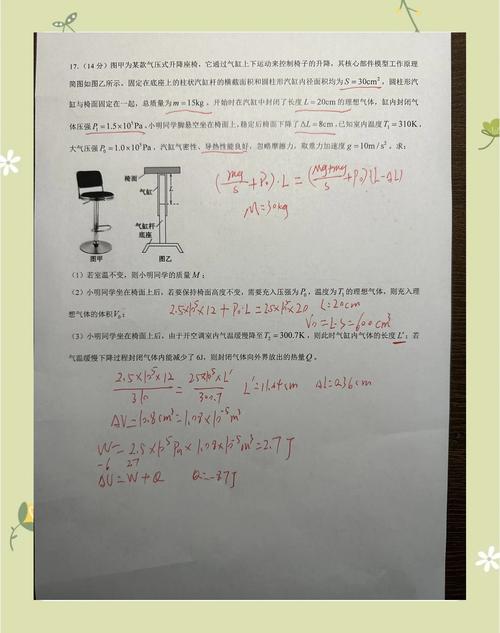 17.（14分）图甲为某款气压式升降座椅，它通过气缸上下运动来控制椅子的升降，其核心部件模型工作原理
简图如图乙所示。固定在底座上的柱状汽缸杆的横截面积和圆柱形汽缸内径面积均为S=30cm²，圆柱形汽
缸与椅面固定在一起，总质量为m=15kg。开始时在汽缸中封闭了长度L=20cm的理想气体，缸内封闭气
体压强P₁=1.5×10⁵Pa，小明同学脚悬空坐在椅面上，稳定后椅面下降了ΔL=8cm，已知室内温度T₁=310K，
大气压强P₀=1.0×10⁵Pa，汽缸气密性、导热性能良好，忽略摩擦力，取重力加速度g=10m/s²。求：
(mg/S+P₀)·L=(Mg+mg/S+P₀)(L-ΔL)
M=30kg
椅面
气缸
气缸杆
底座
图甲
图乙
（1）若室温不变，则小明同学的质量M；
（2）小明同学坐在椅面上后，若要保持椅面高度不变，需要充入压强为P₀，温度为T₁的理想气体，则充入理
想气体的体积V₀；
2.5×10⁵×12+P₀·L=2.5×10⁵×20 L=20cm
V₀=L·S=600cm³
（3）小明同学坐在椅面上后，由于开空调室内气温缓慢降至T₂=300.7K，则此时气缸内气体的长度L′；若
气温缓慢下降过程封闭气体内能减少了6J，则封闭气体向外界放出的热量Q。
2.5×10⁵×12/310=2.5×10⁵×L'/300.7 L'=11.64cm Δl=0.36cm
ΔV=10.8cm³=1.08×10⁻⁵m³
W=2.5×10⁵Pa×1.08×10⁻⁵m³=2.7J
-6 2.7
ΔU=W+Q Q=-8.7J